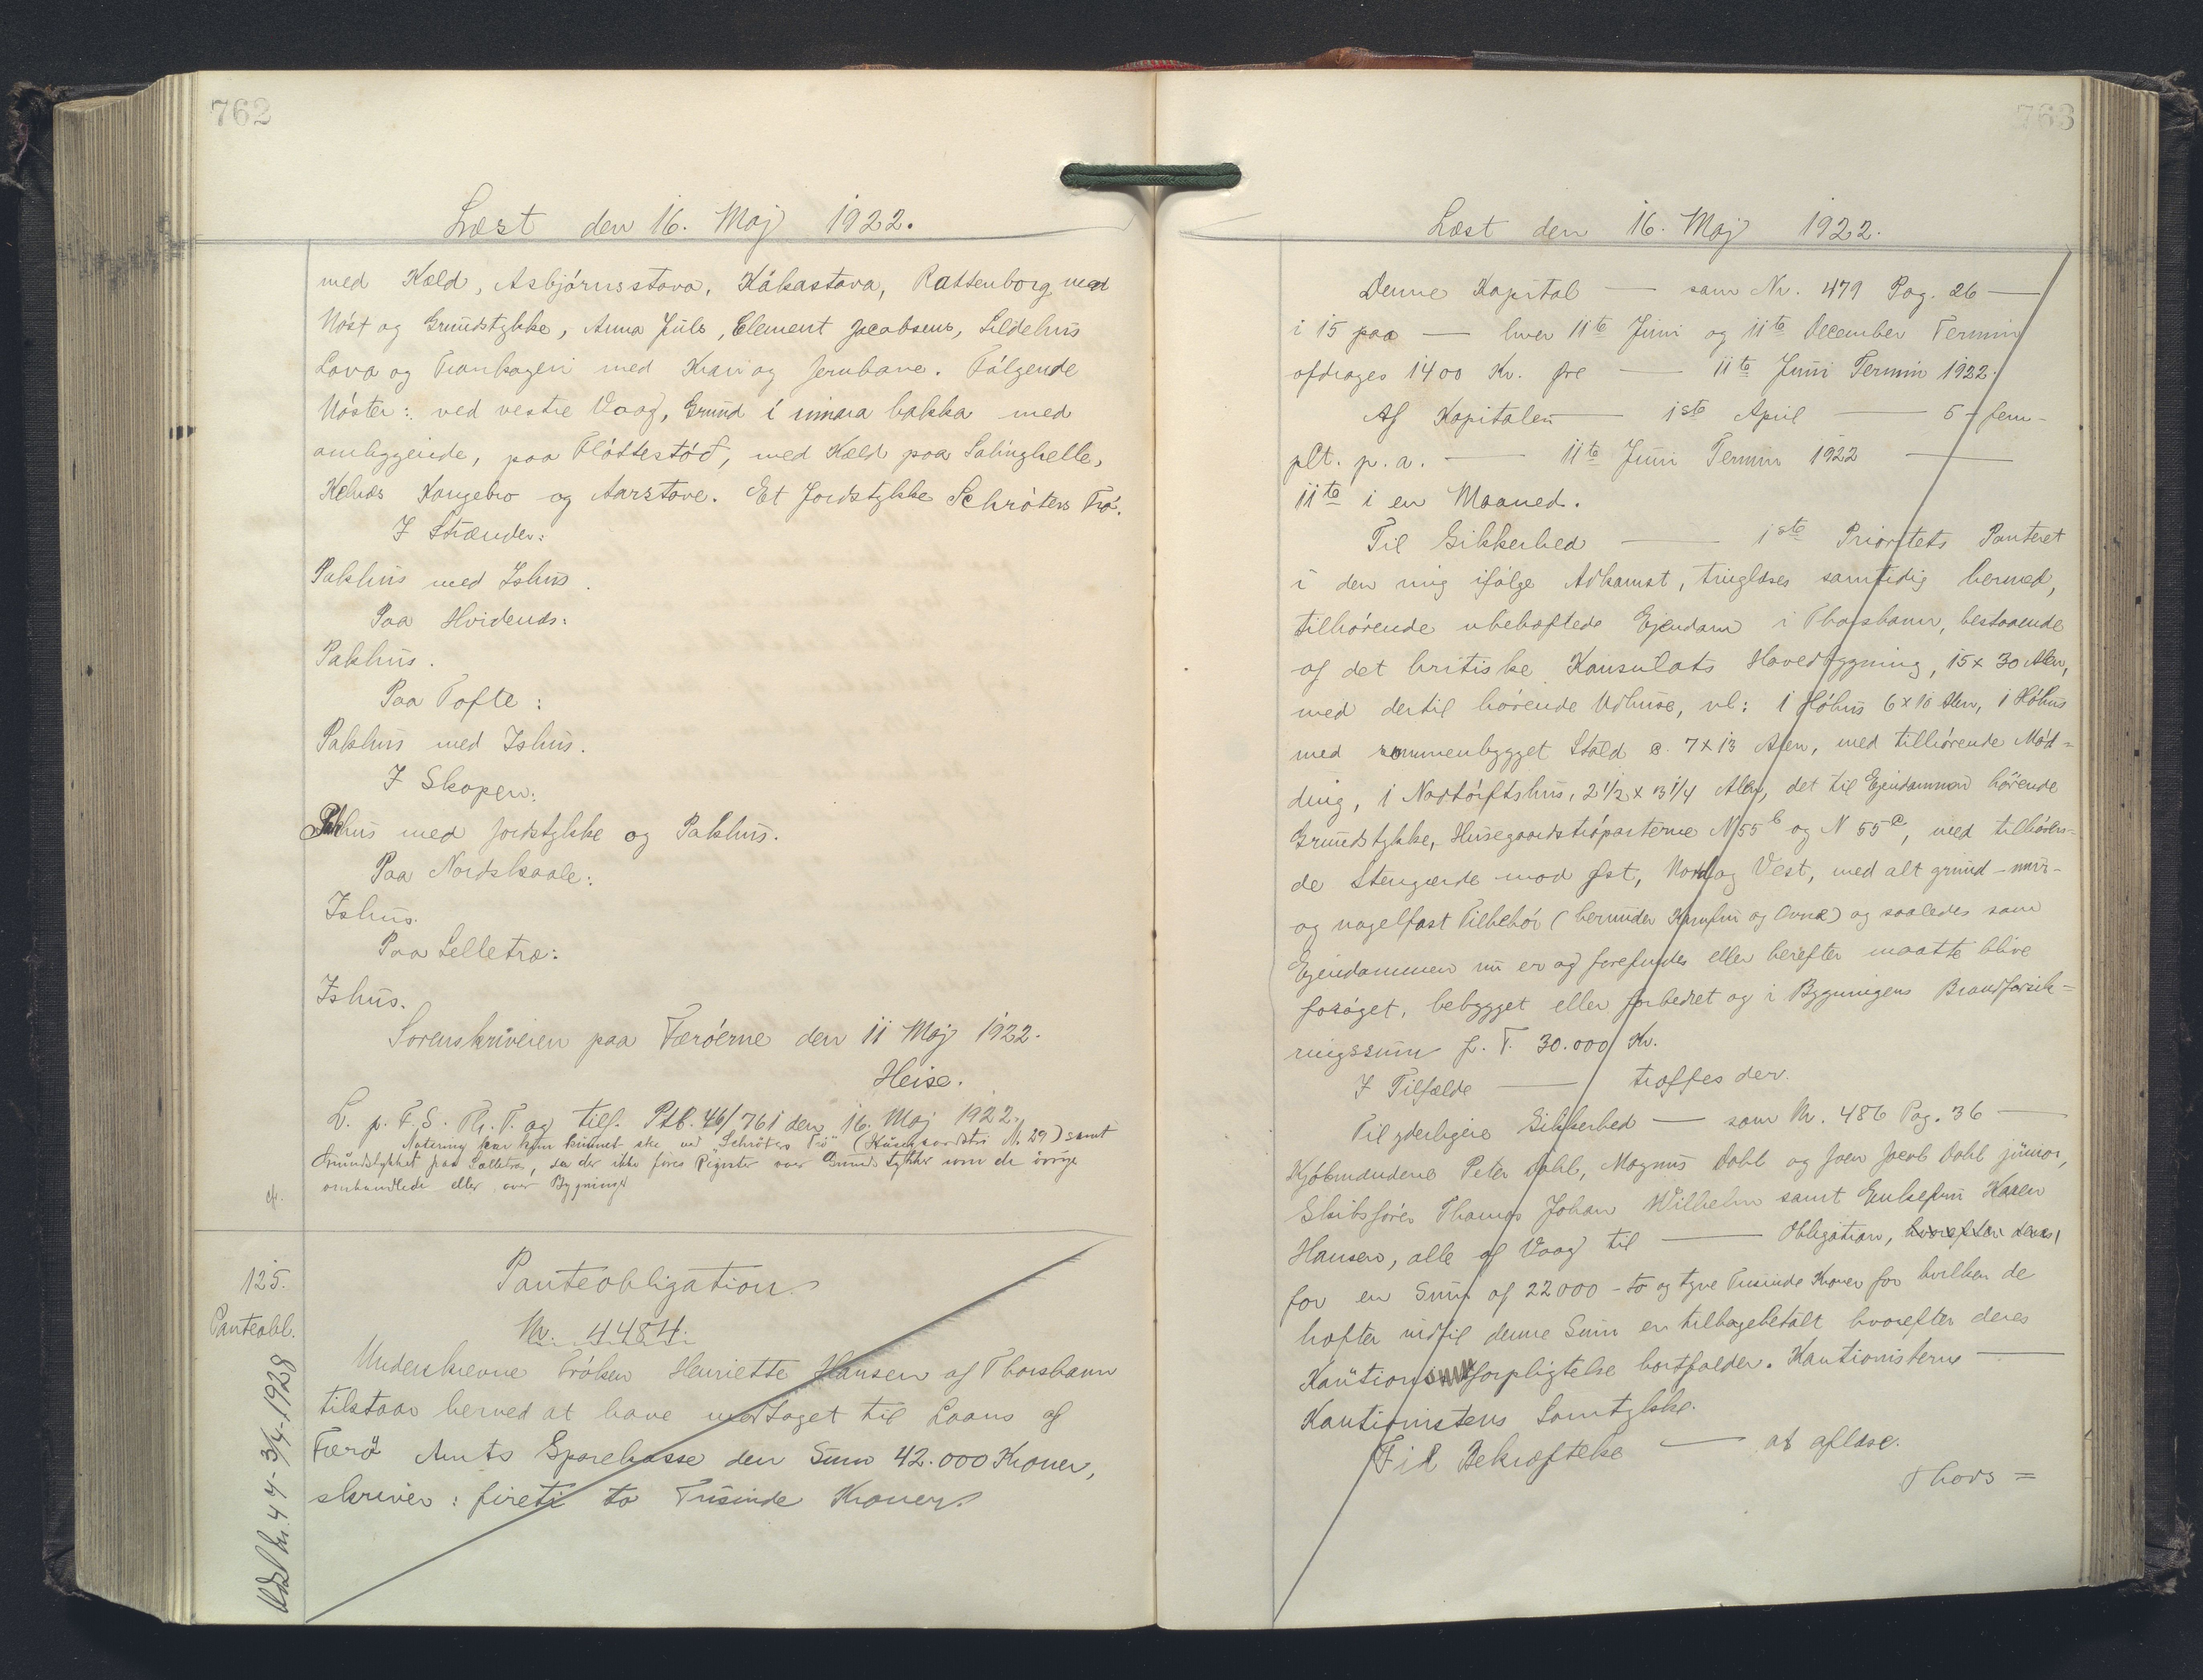 762
Læst den 16. Maj 1922.
med Kæld, Asbjörnsstova, Kákastova, Rattenborg med
Nóst og Grundstykke, Anna Juls, Clement Jacobsens, Sildehus
Lava og Trankogeri med Kran og Jernbane. Følgende
Nóster: ved vestre Vaag, Grund í innara bakka med
omliggende, paa Flóttestöd, med Kæld paa
Kongebro og Aarstove. Et Jordstykke Schröters Trö.
I Strænder:
Pakhus med Ishus.
Paa Hvidenæs:
Pakhus.
Paa Tofte:
Pakhus med Ishus.
I Skopen:
Pakhus med Jordstykke og Pakhus.
Paa Nordskaale:
Ishus.
Paa Selletræ:
Ishus.
Sorenskriveren paa Færöerne den 11 Maj 1922.
Heise.
L. p. F. S. Th. T. og tilf. Ptb. 46/761 den 16. Maj 1922.
Notering kan kun kunnet ske ved "Schröters Trö" (Húsagaardströ N. 29) samt
Grundstykket paa Sælletræ, da der ikke føres Register over Grundstykker som de övrige
omhandlede eller over Bygninger
cfr.
125.
Panteobl.
Udsl Nr. 44 - 3/4-1928
Panteobligation
Nr. 4484.
Underskrevne Fröken Henriette Hansen af Thorshavn
tilstaar herved at have modtaget til Laans af
Færö Amts Sparekasse den Sum 42.000 Kroner,
skriver: fireti to Tusinde Kroner.
763
Læst den 16. Maj 1922.
Denne Kapital — som Nr. 479 Pag. 26 —
i 15 paa — hver 11te Juni og 11te December Termin
afdrages 1400 Kr. Øre — 11te Juni Termin 1922.
Af Kapitalen — 1ste April — 5 - fem -
pCt. p. a. — 11te Juni Termin 1922 —
11te i en Maaned.
Til Sikkerhed — 1ste Prioritets Panteret
i den mig ifølge Adkomst, tinglæses samtidig hermed,
tilhörende ubehæftede Ejendom i Thorshavn, bestaaende
af det britiske Konsulats Hovedbygning, 15 x 30 Alen,
med dertil hörende Udhuse, nl: 1 Höhus 6 x 10 Alen, 1 Höhus
med sammenbygget Stald a. 7 x 13 Alen, med tilhörende Möd=
ding, 1 Nödtörftshus, 2 1/2 x 3 1/4 Alen, det til Ejendommen hörende
Grundstykke, Husegaardströparterne N 55 b og N 55 c, med tilhören=
de Stengærde mod Øst, Nord og Vest, med alt grund-mur-
og nagelfast Tilbehör (herunder Komfur og Ovne) og saaledes som
Ejendommen nu er og forefindes eller herefter maatte blive
foröget, bebygget eller forbedret og i Bygningens Brandforsik=
ringssum p. T. 30.000 Kr.
I Tilfælde — træffes der.
Til yderligere Sikkerhed — som Nr. 486 Pag. 36 —
Kjöbmændene Peter Dahl, Magnus Dahl og Joen Jacob Dahl junior,
Skibsförer Thomas Johan Wilhelm samt Enkefru Karen
Hansen, alle af Vaag til — Obligation, hvorefter deres
for en Sum af 22000 - to og tyve Tusinde Kroner for hvilken de
hæfter indtil denne Sum er tilbagebetalt hvorefter deres
Kautionsforpligtelse bortfalder. Kautionisterne —
Kautionistens Samtykke.
Til Bekræftelse — at aflæse.
Thors=